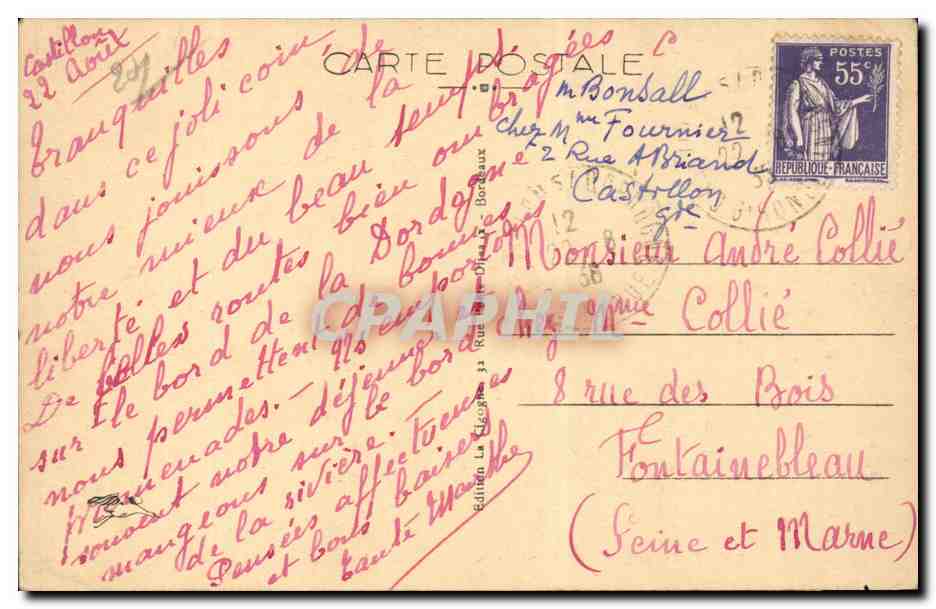 Castillon
22 Août
CARTE POSTALE
Tranquilles
dans ce joli coin de
nous jouissons de
notre mieux de la
liberté et du beau temps
De belles routes bien ombragées
sur le bord de la Dordogne
nous permettent de bonnes
promenades. - Ns emportons
souvent notre déjeuner et
mangeons sur le bord
de la rivière.
Pensées affectueuses
et bons baisers
Tante Marthe
Edition La Cigogne, 32 Rue Dijeaux, Bordeaux
m Bonsall
chez Mme Fournier
2 Rue A Briand
Castillon
Gde
POSTES
55c
REPUBLIQUE-FRANÇAISE
12
22
12
8
GIRONDE
Monsieur André Collié
chez Mme Collié
8 rue des Bois
Fontainebleau
(Seine et Marne)
CPAPHIL